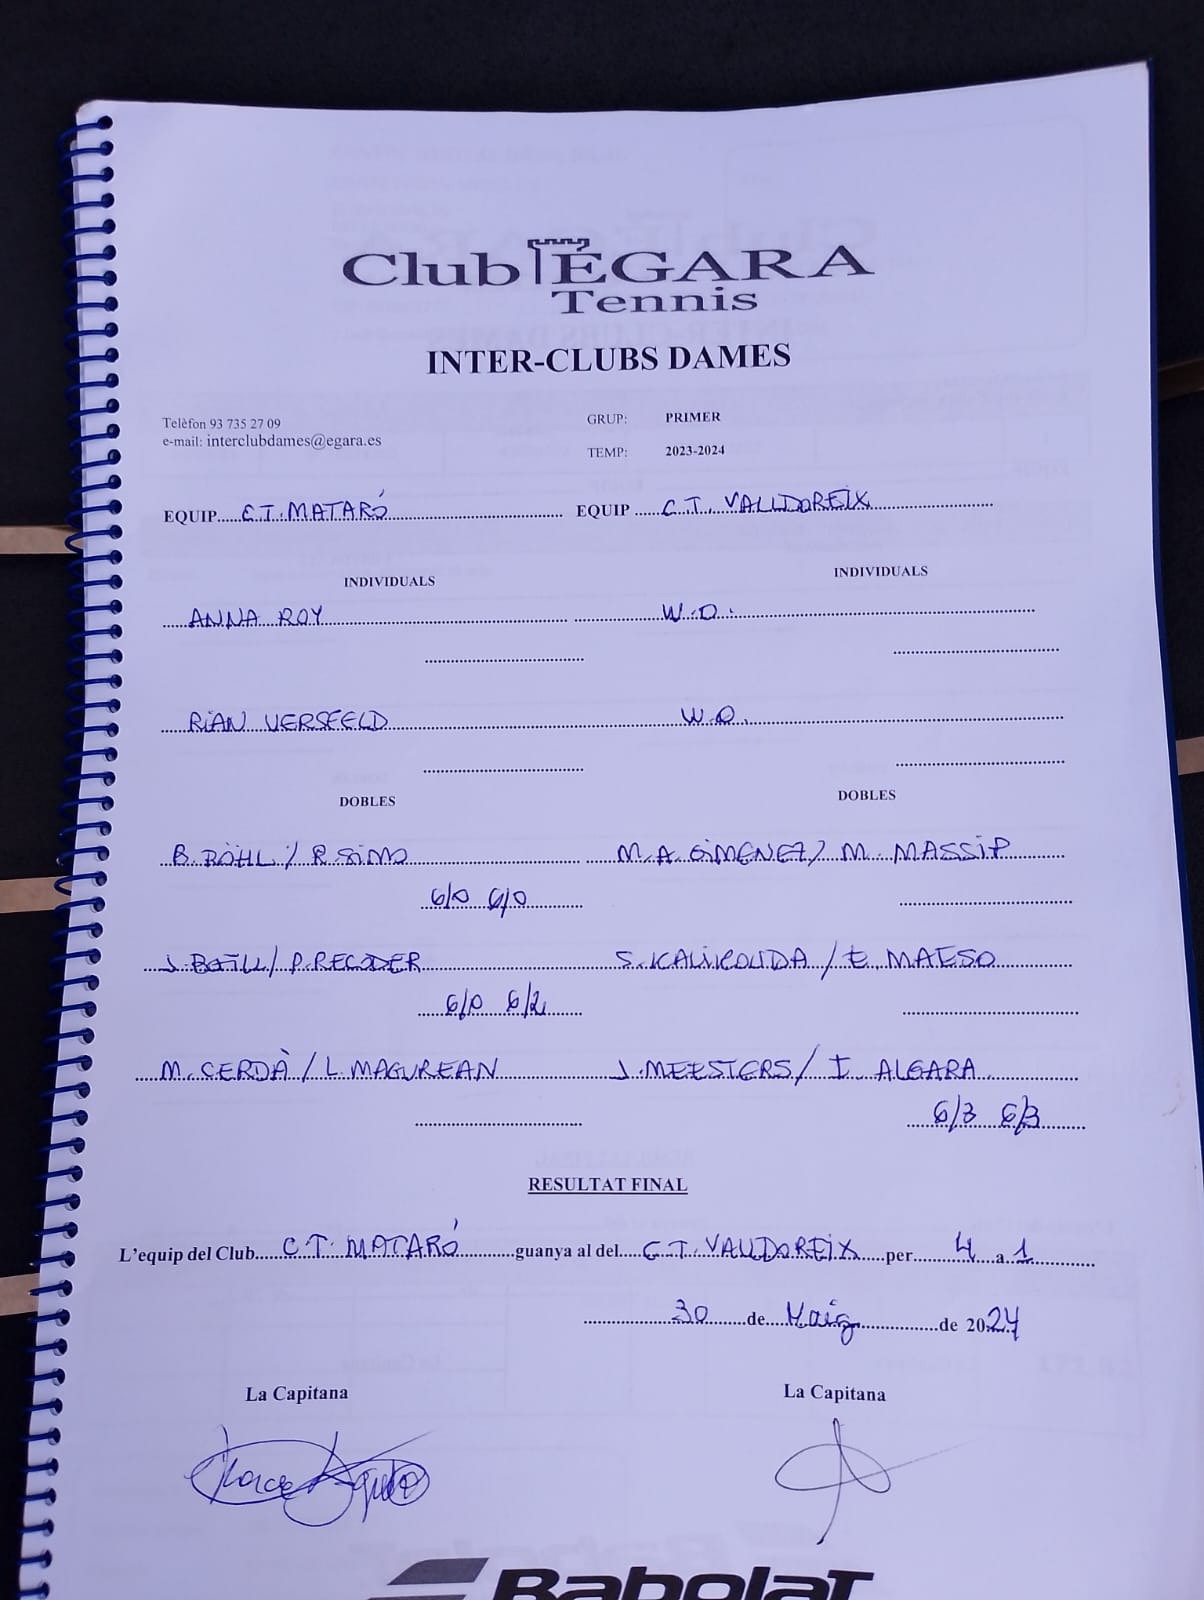 Club EGARA
Tennis
INTER-CLUBS DAMES
Telèfon 93 735 27 09
e-mail: interclubdames@egara.es
GRUP: PRIMER
TEMP: 2023-2024
EQUIP C.T. MATARÓ EQUIP C.T. VALLDOREIX
INDIVIDUALS INDIVIDUALS
ANNA ROY W.O.
RIAN VERSEELD W.O.
DOBLES DOBLES
B. RÖHL / R. SIMO M. A. GIMENEZ / M. MASSIP
6/0 6/0
J. BATLL / P. RECODER S. KALIKOUDA / E. MAESO
6/0 6/2
M. CERDÀ / L. MAGUREAN J. MEESTERS / I. ALGARA
6/3 6/3
RESULTAT FINAL
L'equip del Club C.T. MATARÓ guanya al del C.T. VALLDOREIX per 4 a 1
30 de Maig de 2024
La Capitana La Capitana
Babolat